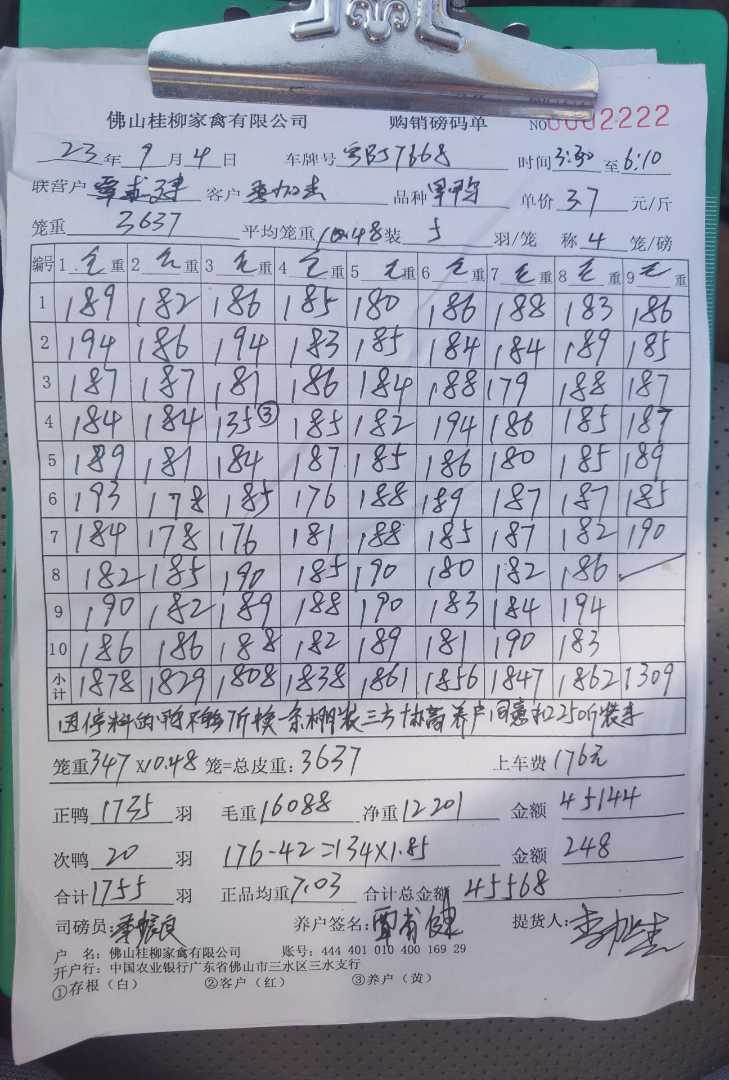 佛山桂柳家禽有限公司 购销磅码单 NO 0002222
23年9月4日 车牌号 7668 时间3:30至6:10
联营户 客户 品种 单价 3.7 元/斤
笼重 3637 平均笼重10.48装 5 羽/笼 称 4 笼/磅
编号 1 毛重 2 毛重 3 毛重 4 毛重 5 毛重 6 毛重 7 毛重 8 毛重 9 毛重
1 189 182 186 185 180 186 188 183 186
2 194 186 194 183 185 184 184 189 185
3 187 187 181 186 184 188 179 188 187
4 184 184 135③ 185 182 194 186 185 187
5 189 181 184 187 185 186 180 185 189
6 193 178 185 176 188 189 187 187 185
7 184 178 176 181 188 185 187 182 190
8 182 185 190 185 190 180 182 186 ✓
9 190 182 189 188 190 183 184 194
10 186 186 188 182 189 181 190 183
小计 1878 1829 1808 1838 1861 1856 1847 1862 1309
因停料的 不够 斤换一条棚装三方协商养户同意扣250斤装车
笼重347×10.48笼=总皮重:3637 上车费176元
正鸭1735羽 毛重16088 净重12201 金额45144
次鸭20羽 176-42=134×1.85 金额248
合计1755羽 正品均重7.03 合计总金额45568
司磅员: 养户签名: 提货人:
户 名:佛山桂柳家禽有限公司 账号:444 401 010 400 169 29
开户行:中国农业银行广东省佛山市三水区三水支行
①存根(白) ②客户(红) ③养户(黄)